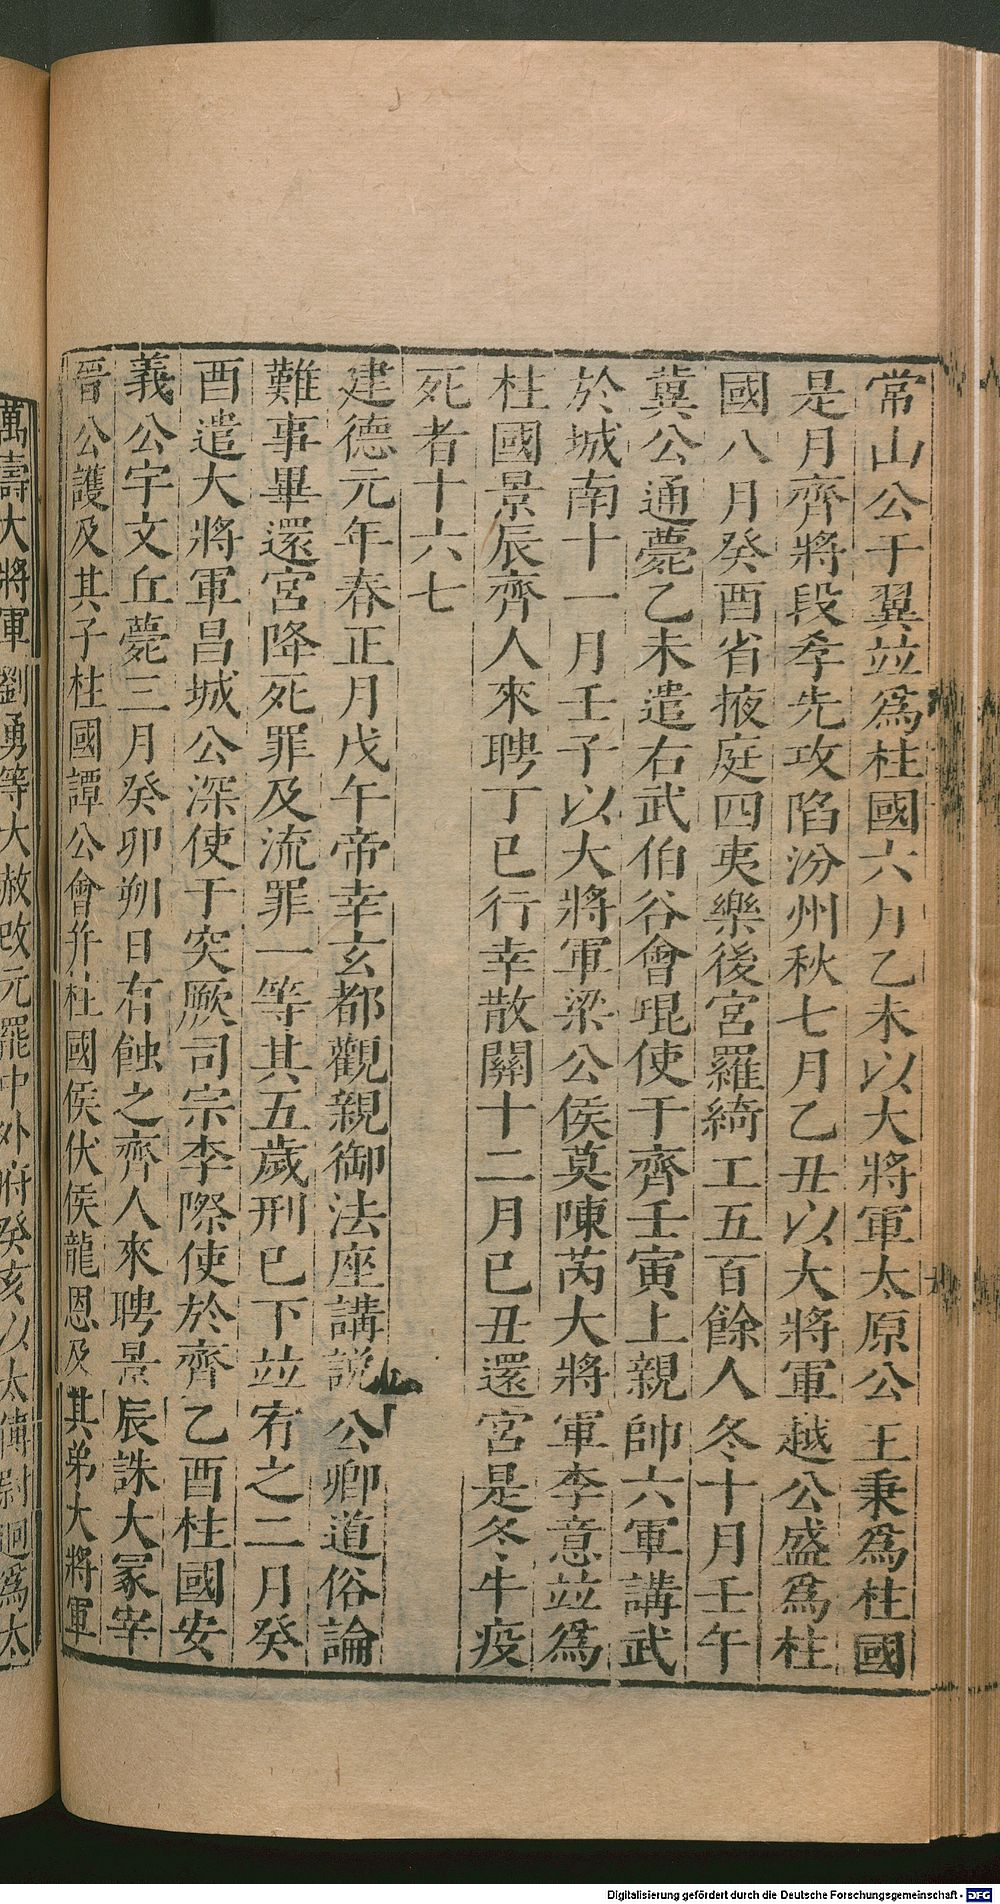 常山公于翼竝爲柱國六月乙未以大將軍太原公王秉爲柱國
是月齊將段孝先攻陷汾州秋七月乙丑以大將軍越公盛爲柱
國八月癸酉省掖庭四夷樂後宮羅綺工五百餘人冬十月壬午
冀公通薨乙未遣右武伯谷會琨使于齊壬寅上親帥六軍講武
於城南十一月壬子以大將軍梁公侯莫陳芮大將軍李意竝爲
柱國景辰齊人來聘丁巳行幸散關十二月巳丑還宮是冬牛疫
死者十六七
建德元年春正月戊午帝幸玄都觀親御法座講説公卿道俗論
難事畢還宮降死罪及流罪一等其五歲刑巳下竝宥之二月癸
酉遣大將軍昌城公深使于突厥司宗李際使於齊乙酉柱國安
義公宇文丘薨三月癸卯朔日有蝕之齊人來聘景辰誅大冢宰
晉公護及其子柱國譚公會幷柱國侯伏侯龍恩及其弟大將軍
萬壽大將軍劉勇等大赦改元罷中外府癸亥以太傅尉迥爲太
Digitalisierung gefördert durch die Deutsche Forschungsgemeinschaft - DFG